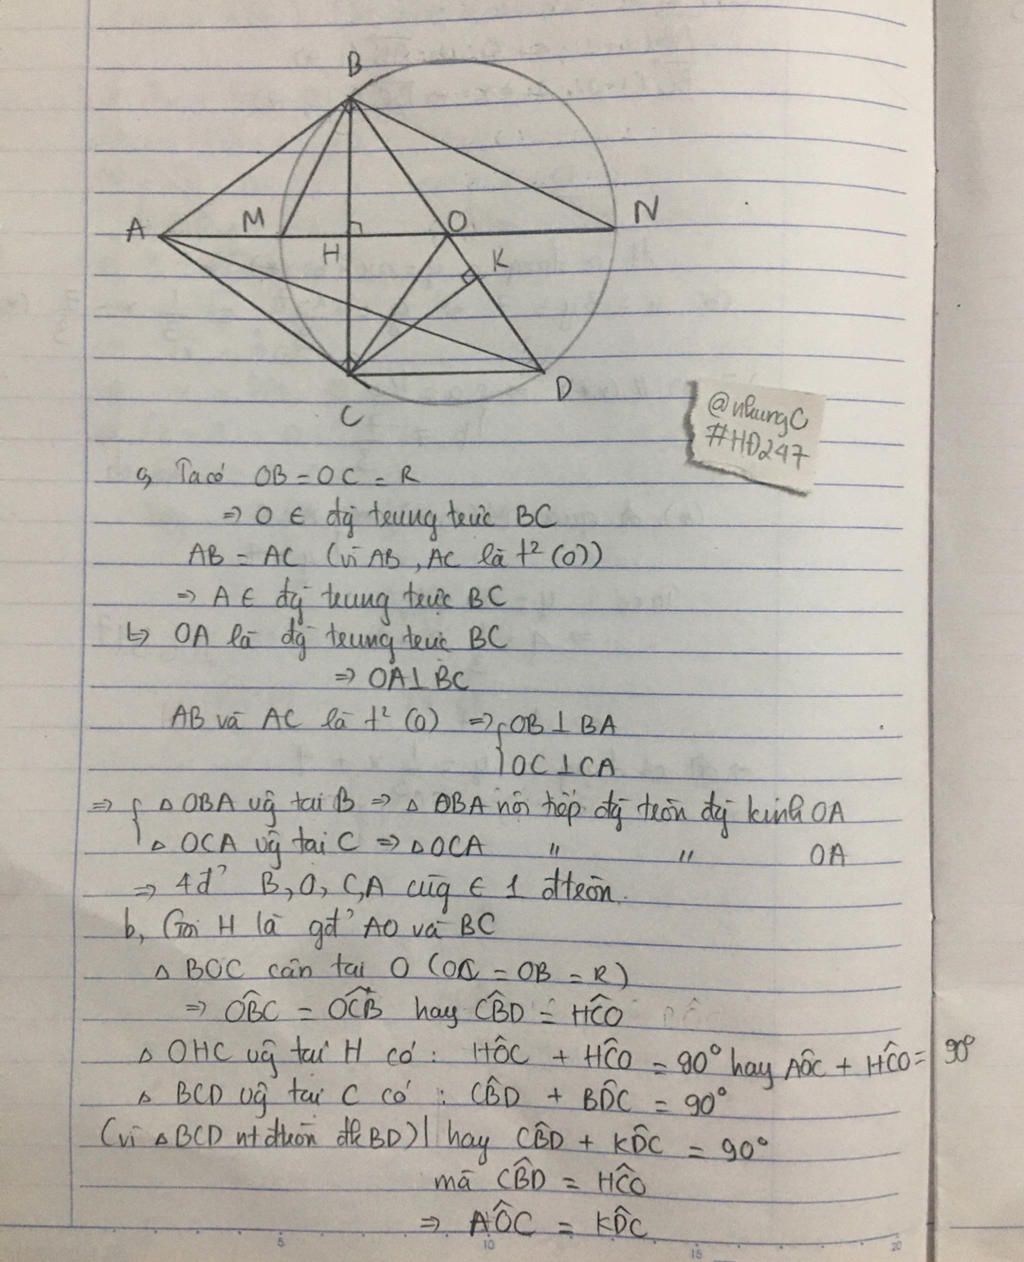 B
A
M
H
O
N
K
C
D
@nhungC
#HĐ247
a, Ta có OB = OC = R
⇒ O ∈ đg trung trực BC
AB = AC (vì AB, AC là t² (O))
⇒ A ∈ đg trung trực BC
↳ OA là đg trung trực BC
⇒ OA ⊥ BC
AB và AC là t² (O) ⇒ { OB ⊥ BA
OC ⊥ CA
⇒ { △ OBA vg tại B ⇒ △ OBA nội tiếp đg tròn đg kính OA
△ OCA vg tại C ⇒ △ OCA " " OA
⇒ 4đ' B, O, C, A cùg ∈ 1 đtròn.
b, Gọi H là gđ' AO và BC
△ BOC cân tại O (OC = OB = R)
⇒ OB̂C = OĈB hay CB̂D = HĈO
△ OHC vg tại H có : HÔC + HĈO = 90° hay AÔC + HĈO = 90°
△ BCD vg tại C có : CB̂D + BD̂C = 90°
(vì △ BCD nt đtròn đk BD) | hay CB̂D + KD̂C = 90°
mà CB̂D = HĈO
⇒ AÔC = KD̂C
5 10 15 20